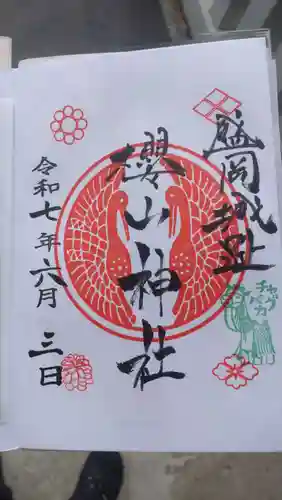 盛岡城址
櫻山神社
令和七年六月三日
チャグチャグ